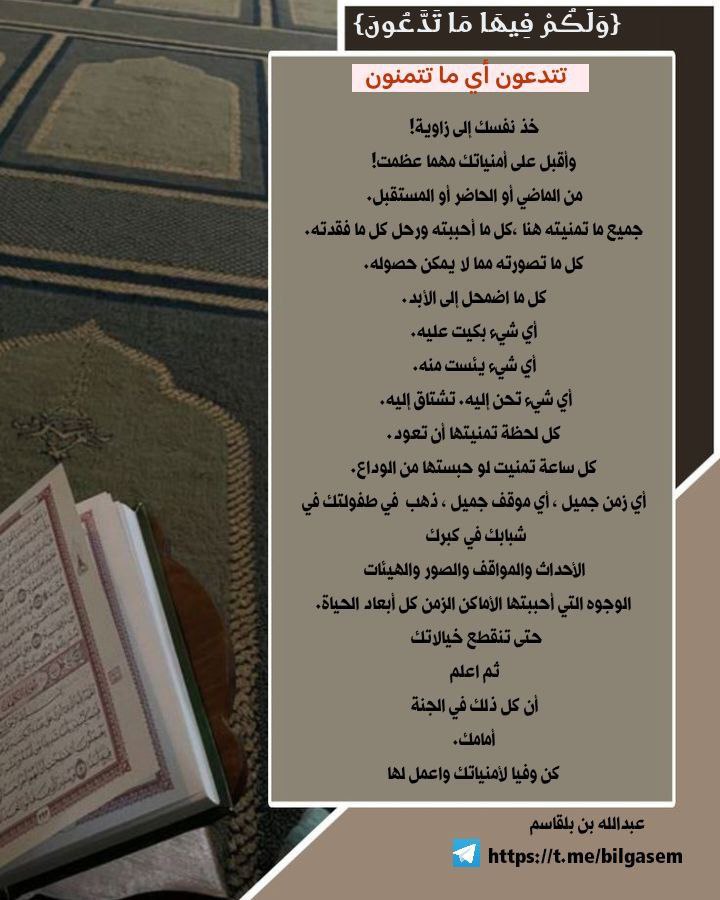 {وَلَكُمْ فِيهَا مَا تَدَّعُونَ}
تتدعون أي ما تتمنون
خذ نفسك إلى زاوية!
وأقبل على أمنياتك مهما عظمت!
من الماضي أو الحاضر أو المستقبل.
جميع ما تمنيته هنا ،كل ما أحببته ورحل كل ما فقدته.
كل ما تصورته مما لا يمكن حصوله.
كل ما اضمحل إلى الأبد.
أي شيء بكيت عليه.
أي شيء يئست منه.
أي شيء تحن إليه. تشتاق إليه.
كل لحظة تمنيتها أن تعود.
كل ساعة تمنيت لو حبستها من الوداع.
أي زمن جميل ، أي موقف جميل ، ذهب في طفولتك في
شبابك في كبرك
الأحداث والمواقف والصور والهيئات
الوجوه التي أحببتها الأماكن الزمن كل أبعاد الحياة.
حتى تنقطع خيالاتك
ثم اعلم
أن كل ذلك في الجنة
أمامك.
كن وفيا لأمنياتك واعمل لها
عبدالله بن بلقاسم
https://t.me/bilgasem